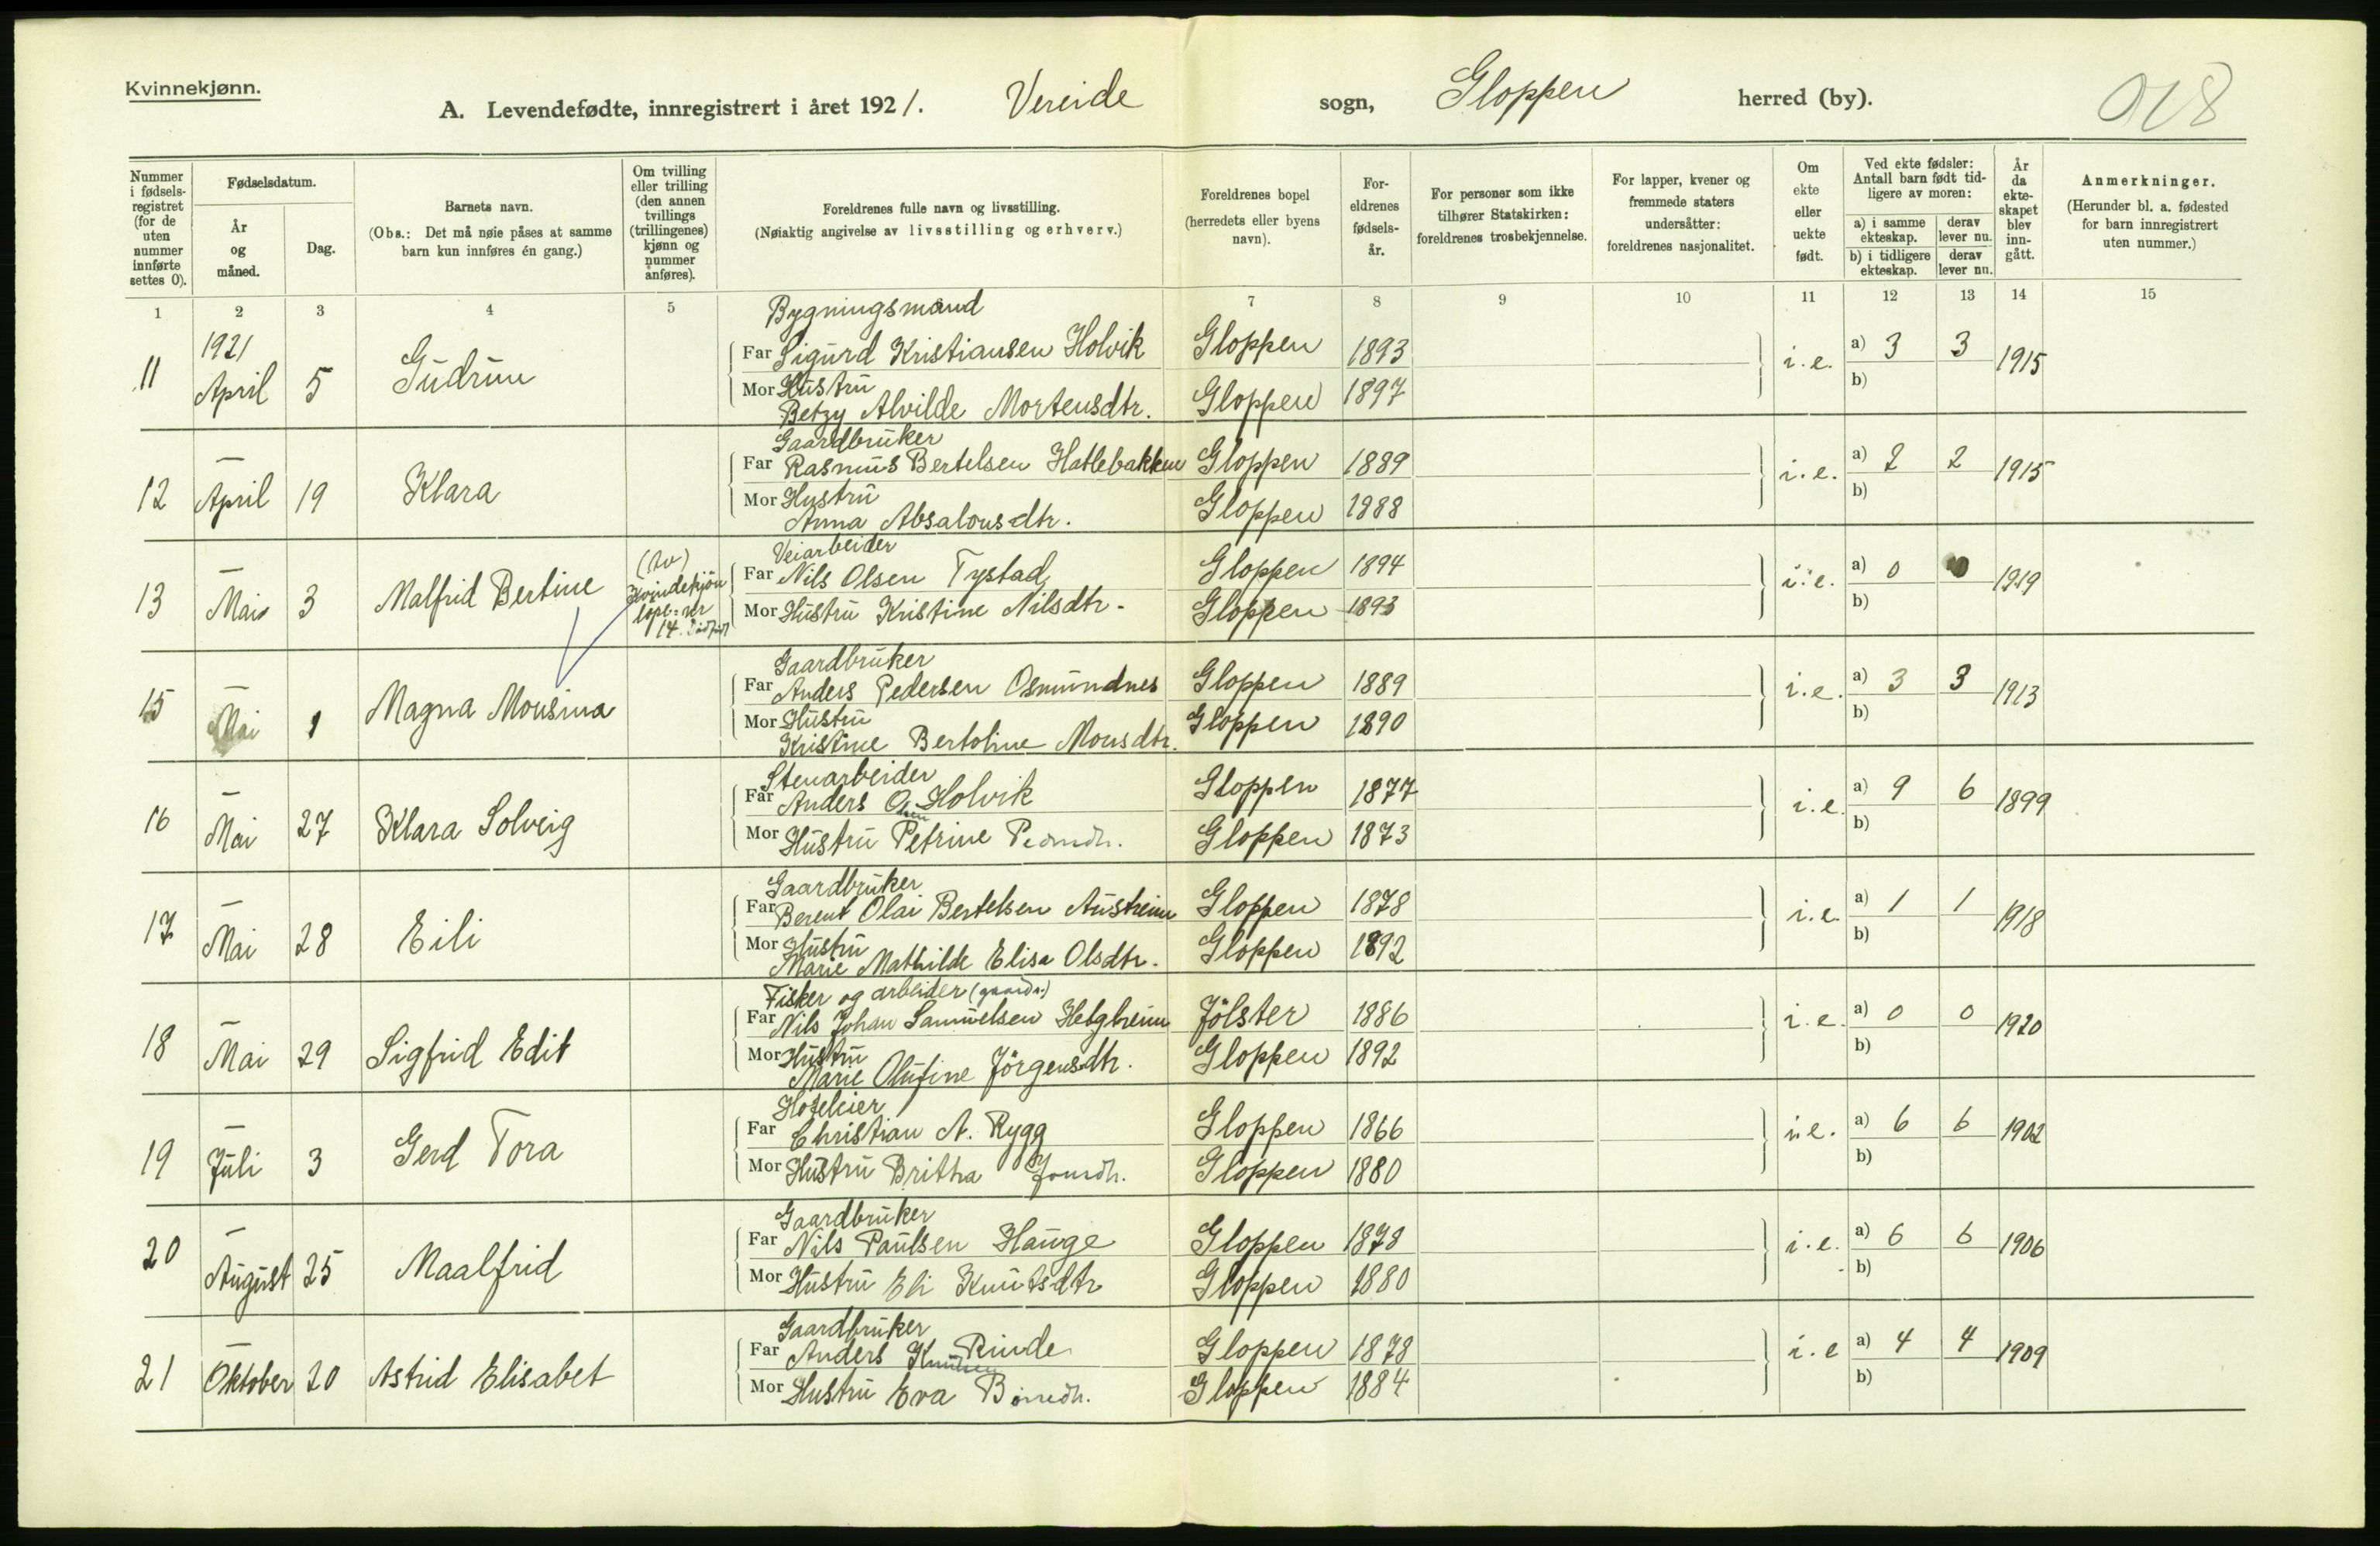 Kvinnekjønn.
A. Levendefødte, innregistrert i året 1921. Vereide sogn, Gloppen herred (by).
Nummer i fødsels-registret (for de uten nummer innførte settes 0).
Fødselsdatum.
År og måned.
Dag.
Barnets navn.
(Obs.: Det må nøie påses at samme barn kun innføres én gang.)
Om tvilling eller trilling (den annen tvillings (trillingenes) kjønn og nummer anføres).
Foreldrenes fulle navn og livsstilling.
(Nøiaktig angivelse av livsstilling og erhverv.)
Foreldrenes bopel (herredets eller byens navn).
For-eldrenes fødsels-år.
For personer som ikke tilhører Statskirken: foreldrenes trosbekjennelse.
For lapper, kvener og fremmede staters undersåtter: foreldrenes nasjonalitet.
Om ekte eller uekte født.
Ved ekte fødsler: Antall barn født tid-ligere av moren:
a) i samme ekteskap. derav lever nu.
b) i tidligere ekteskap. derav lever nu.
År da ekte-skapet blev inn-gått.
Anmerkninger.
(Herunder bl. a. fødested for barn innregistrert uten nummer.)
1 2 3 4 5 7 8 9 10 11 12 13 14 15
Bygningsmand
1921
11 April 5 Gudrun Far Sigurd Kristiansen Holvik Gloppen 1893 i.e. a) 3 3 1915
Mor Hustru Gloppen 1897 b)
Betzy Alvilde Mortensdtr.
Gaardbruker
12 — April 19 Klara Far Rasmus Bertelsen Hatlebakken Gloppen 1889 i.e. a) 2 2 1915
Mor Hustru Gloppen 1888 b)
Anna Absalonsdtr.
Veiarbeider
13 — Mai 3 Malfrid Bertine (tv) Kvindekjøn løpe-nr 14. Far Nils Olsen Tystad Gloppen 1894 i.e. a) 0 0 1919
Mor Hustru Kristine Nilsdtr. Gloppen 1893 b)
Gaardbruker
15 — Mai 1 Magna Monsina Far Anders Pedersen Osmundnes Gloppen 1889 i.e. a) 3 3 1913
Mor Hustru Gloppen 1890 b)
Kristine Bertoline Monsdtr.
Stenarbeider
16 — Mai 27 Klara Solveig Far Anders Olsen Holvik Gloppen 1877 i.e. a) 9 6 1899
Mor Hustru Petrine Gloppen 1873 b)
Gaardbruker
17 — Mai 28 Eili Far Berent Olai Bertelsen Austreim Gloppen 1878 i.e. a) 1 1 1918
Mor Hustru Gloppen 1892 b)
Marie Mathilde Elisa Olsdtr.
Fisker og arbeider (gaards.)
18 — Mai 29 Sigfrid Edit Far Nils Johan Samuelsen Helgheim Jölster 1886 i.e. a) 0 0 1920
Mor Hustru Gloppen 1892 b)
Marie Olufine Jörgensdtr.
Hoteleier
19 — Juli 3 Gerd Tora Far Christian A. Rygg Gloppen 1866 i.e. a) 6 6 1902
Mor Hustru Britha Gloppen 1880 b)
Gaardbruker
20 — August 25 Maalfrid Far Nils Paulsen Hauge Gloppen 1878 i.e. a) 6 6 1906
Mor Hustru Eli Knutsdtr Gloppen 1880 b)
Gaardbruker
21 — Oktober 20 Astrid Elisabet Far Anders Knutsen Rinde Gloppen 1878 i.e a) 4 4 1909
Mor Hustru Eva Gloppen 1884 b)